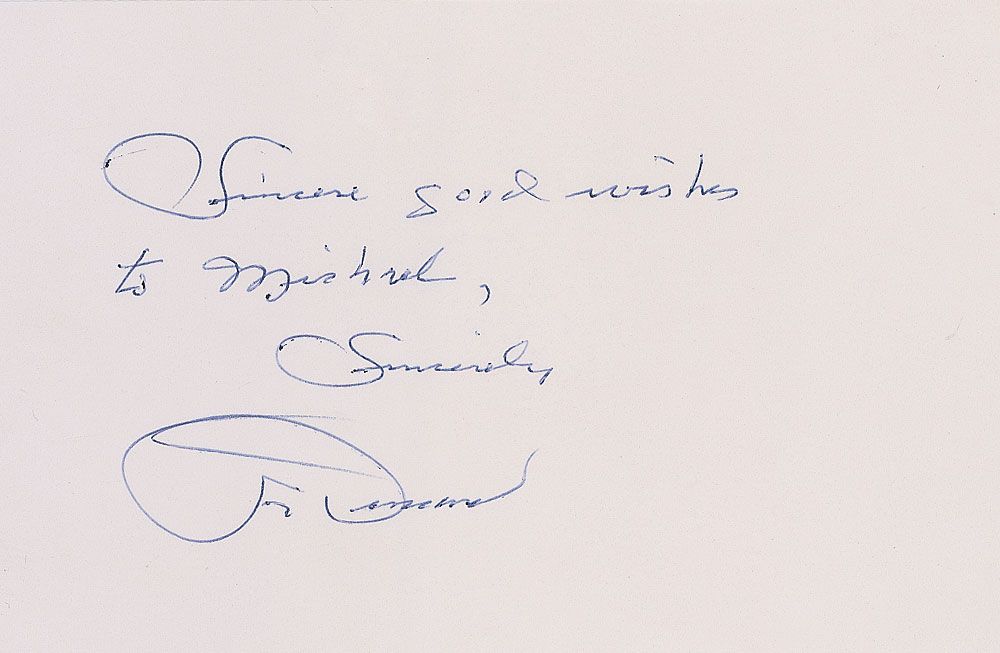 Sincere good wishes
to Michael,
Sincerely